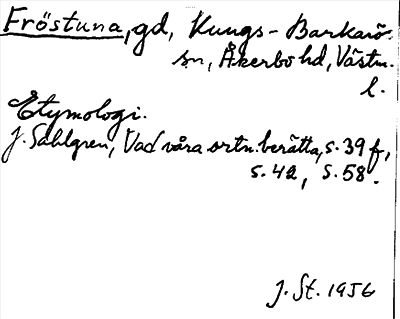 Fröstuna, gd, Kungs-Barkarö
sn, Åkerbo hd, Västm.
l.
Etymologi.
J. Sahlgren, Vad våra ortn. berätta, s. 39 f,
s. 42, s. 58.
J. St. 1956